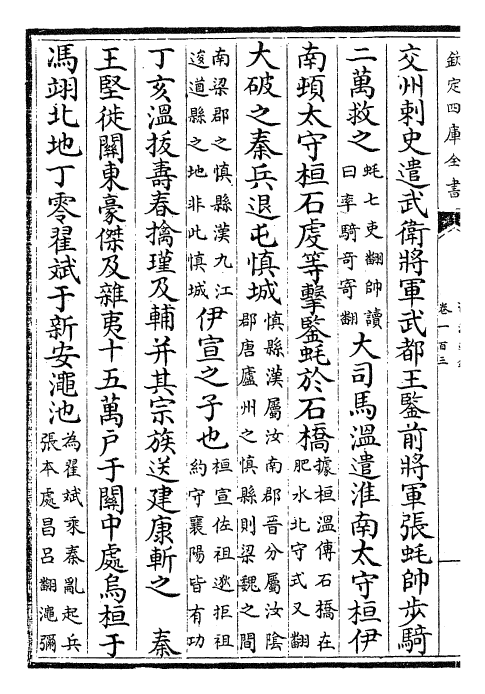 欽定四庫全書
卷一百三
交州刺史遣武衛將軍武都王鑒前將軍張蚝帥步騎
二萬救之蚝七吏翻帥讀曰率騎奇寄翻大司馬溫遣淮南太守桓伊
南頓太守桓石虔等擊鑒蚝於石橋據桓溫傳石橋在肥水北守式又翻
大破之秦兵退屯慎城慎縣漢屬汝南郡晉分屬汝陰郡唐廬州之慎縣則梁魏之間
南梁郡之慎縣漢九江逡遒縣之地非此慎城伊宣之子也桓宣佐祖逖拒祖約守襄陽皆有功
丁亥溫拔壽春擒瑾及輔并其宗族送建康斬之　秦
王堅徙關東豪傑及雜夷十五萬戶于關中處烏桓于
馮翊北地丁零翟斌于新安澠池為翟斌乘秦亂起兵張本處昌呂翻澠彌